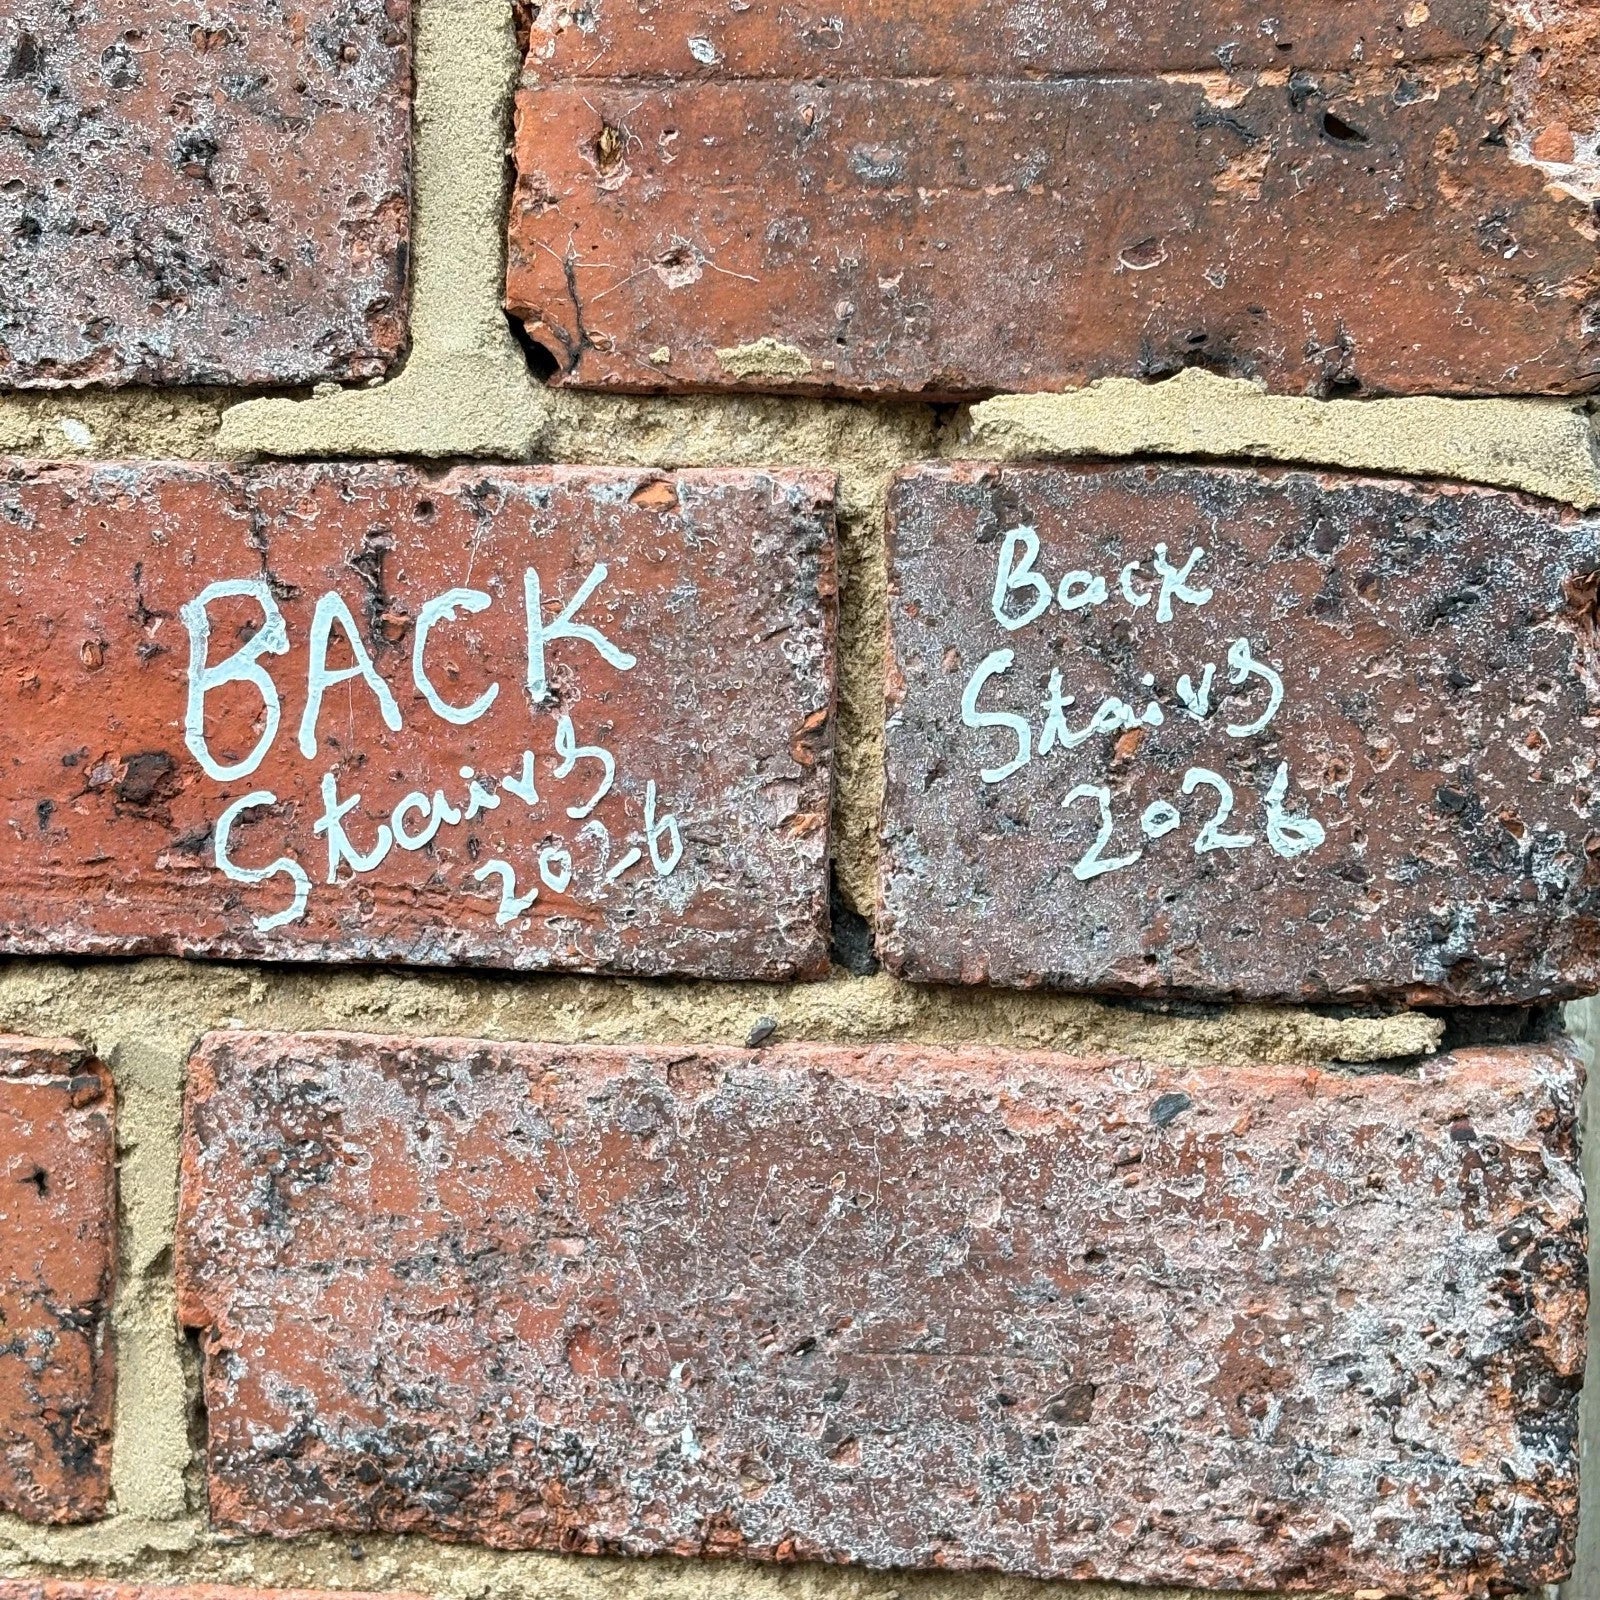 BACK
Stairs
2026
Back
Stairs
2026